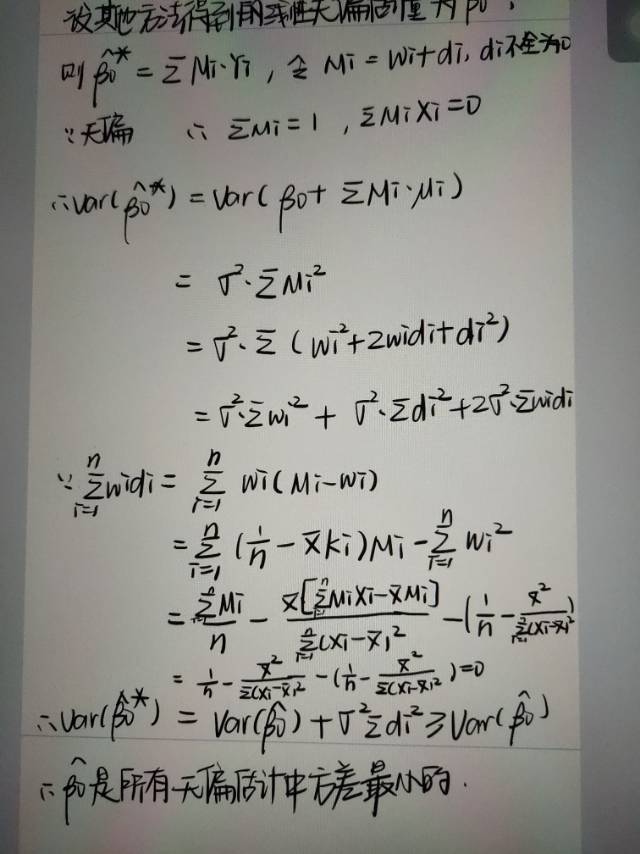 设其他方法得到的线性无偏估计量为β₀*,
则 β̂₀* = ΣMi·Yi , 令 Mi = wi+di, di不全为0
∵无偏 ∴ ΣMi = 1 , ΣMiXi = 0
∴ var(β̂₀*) = var(β₀ + ΣMi·μi)
= σ²·ΣMi²
= σ²·Σ(wi²+2widi+di²)
= σ²·Σwi² + σ²·Σdi² + 2σ²·Σwidi
∵ Σⁿᵢ₌₁ widi = Σⁿᵢ₌₁ wi(Mi-wi)
= Σⁿᵢ₌₁ (1/n - x̄ki)Mi - Σⁿᵢ₌₁ wi²
= ΣMi/n - x̄[Σⁿᵢ₌₁MiXi-x̄Mi]/Σⁿᵢ₌₁(xi-x̄)² - (1/n - x̄²/Σⁿᵢ₌₁(xi-x̄)²)
= 1/n - x̄²/Σ(xi-x̄)² - (1/n - x̄²/Σ(xi-x̄)²) = 0
∴ var(β̂₀*) = var(β̂₀) + σ²Σdi² ≥ var(β̂₀)
∴ β̂₀是所有无偏估计中方差最小的.